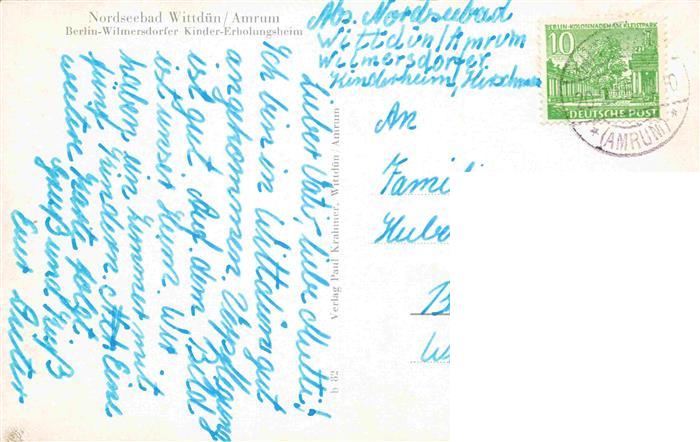 Nordseebad Wittdün/Amrum
Berlin-Wilmersdorfer Kinder-Erholungsheim
Lieber Vati, liebe Mutti!
Ich bin in Wittdün gut
angekommen. Verpflegung
ist gut. Auf dem Bild
ist unser Heim. Wir
haben ein Zimmer mit
fünf Kindern. Eine
weitere Karte folgt.
Gruß und Kuß
Euer Dieter
b 82 Verlag Paul Krahmer, Wittdün Amrum
Abs. Nordseebad
Wittdün/Amrum
Wilmersdorfer
Kinderheim,
An
Famil
Hube
B
BERLIN-KOLONNADEN AM KLEISTPARK
10
DEUTSCHE POST
(AMRUM)